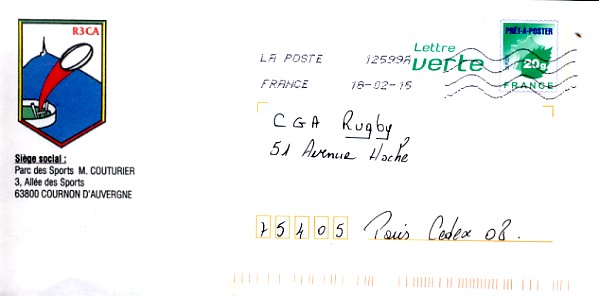 R3CA
Siège social :
Parc des Sports M. COUTURIER
3, Allée des Sports
63800 COURNON D'AUVERGNE
LA POSTE 12599A
FRANCE 18-02-15
Lettre
verte
PRÊT-À-POSTER
20g
FRANCE
CGA Rugby
51 Avenue Hoche
75405 Paris Cedex 08.